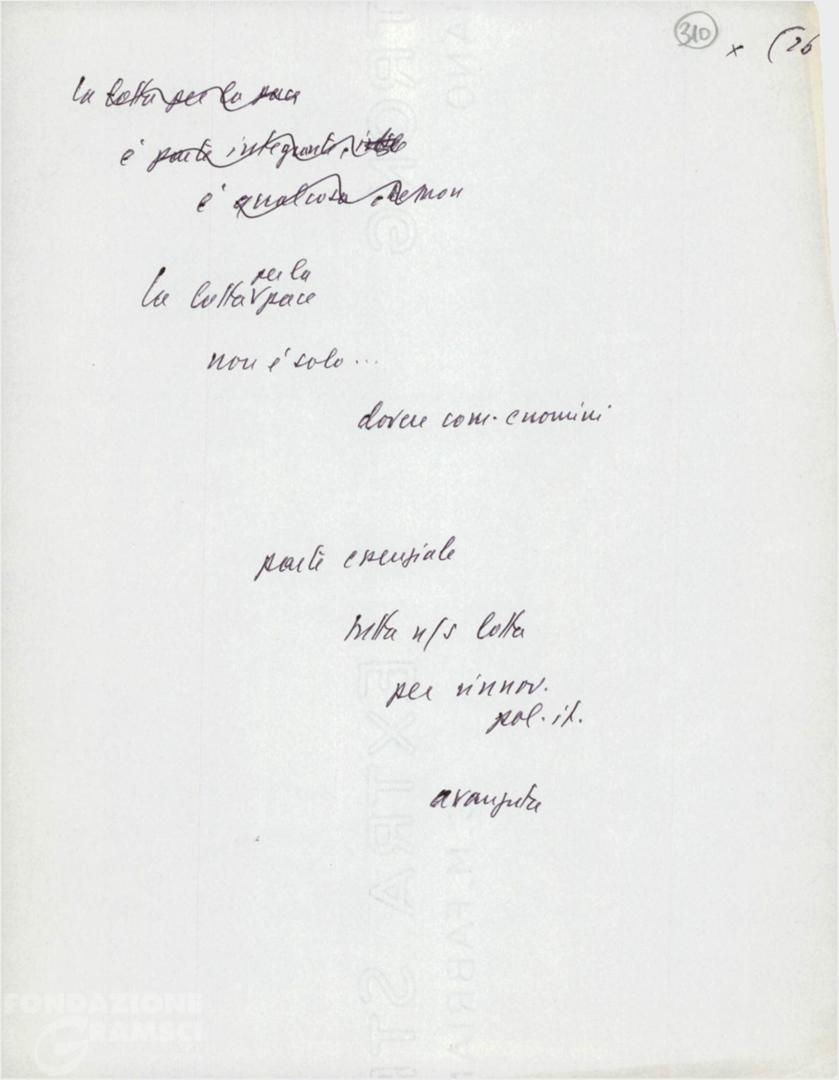 310 x (26
la lotta per la pace
è parte integrante,
è qualcosa che non
per la
la lotta pace
non è solo ...
dovere com. e uomini
parte essenziale
tutta n/s lotta
per rinnov.
pol. it.
avanzata
EXTRA STRONG
FABRIANO
FONDAZIONE
GRAMSCI